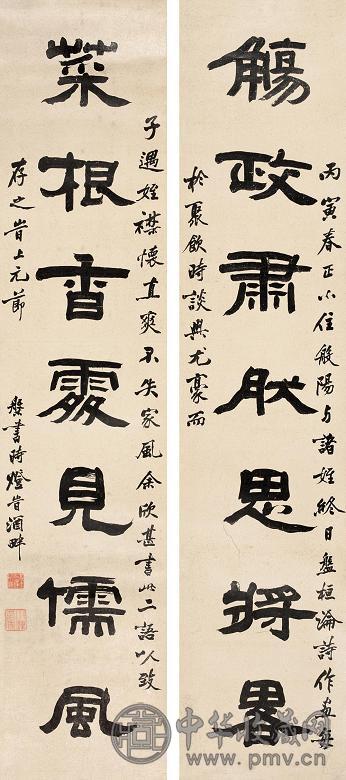 觴政肅肰思將畧
丙寅春正小住般陽与諸姪終日盤桓論詩作畫每
於聚飲時談興尤豪而
菜根香處見儒風
子遇姪襟懷直爽不失家風余欣甚書此二語以致
存之旹上元節
書時燈酒畔
中华收藏网
www.pmv.cn